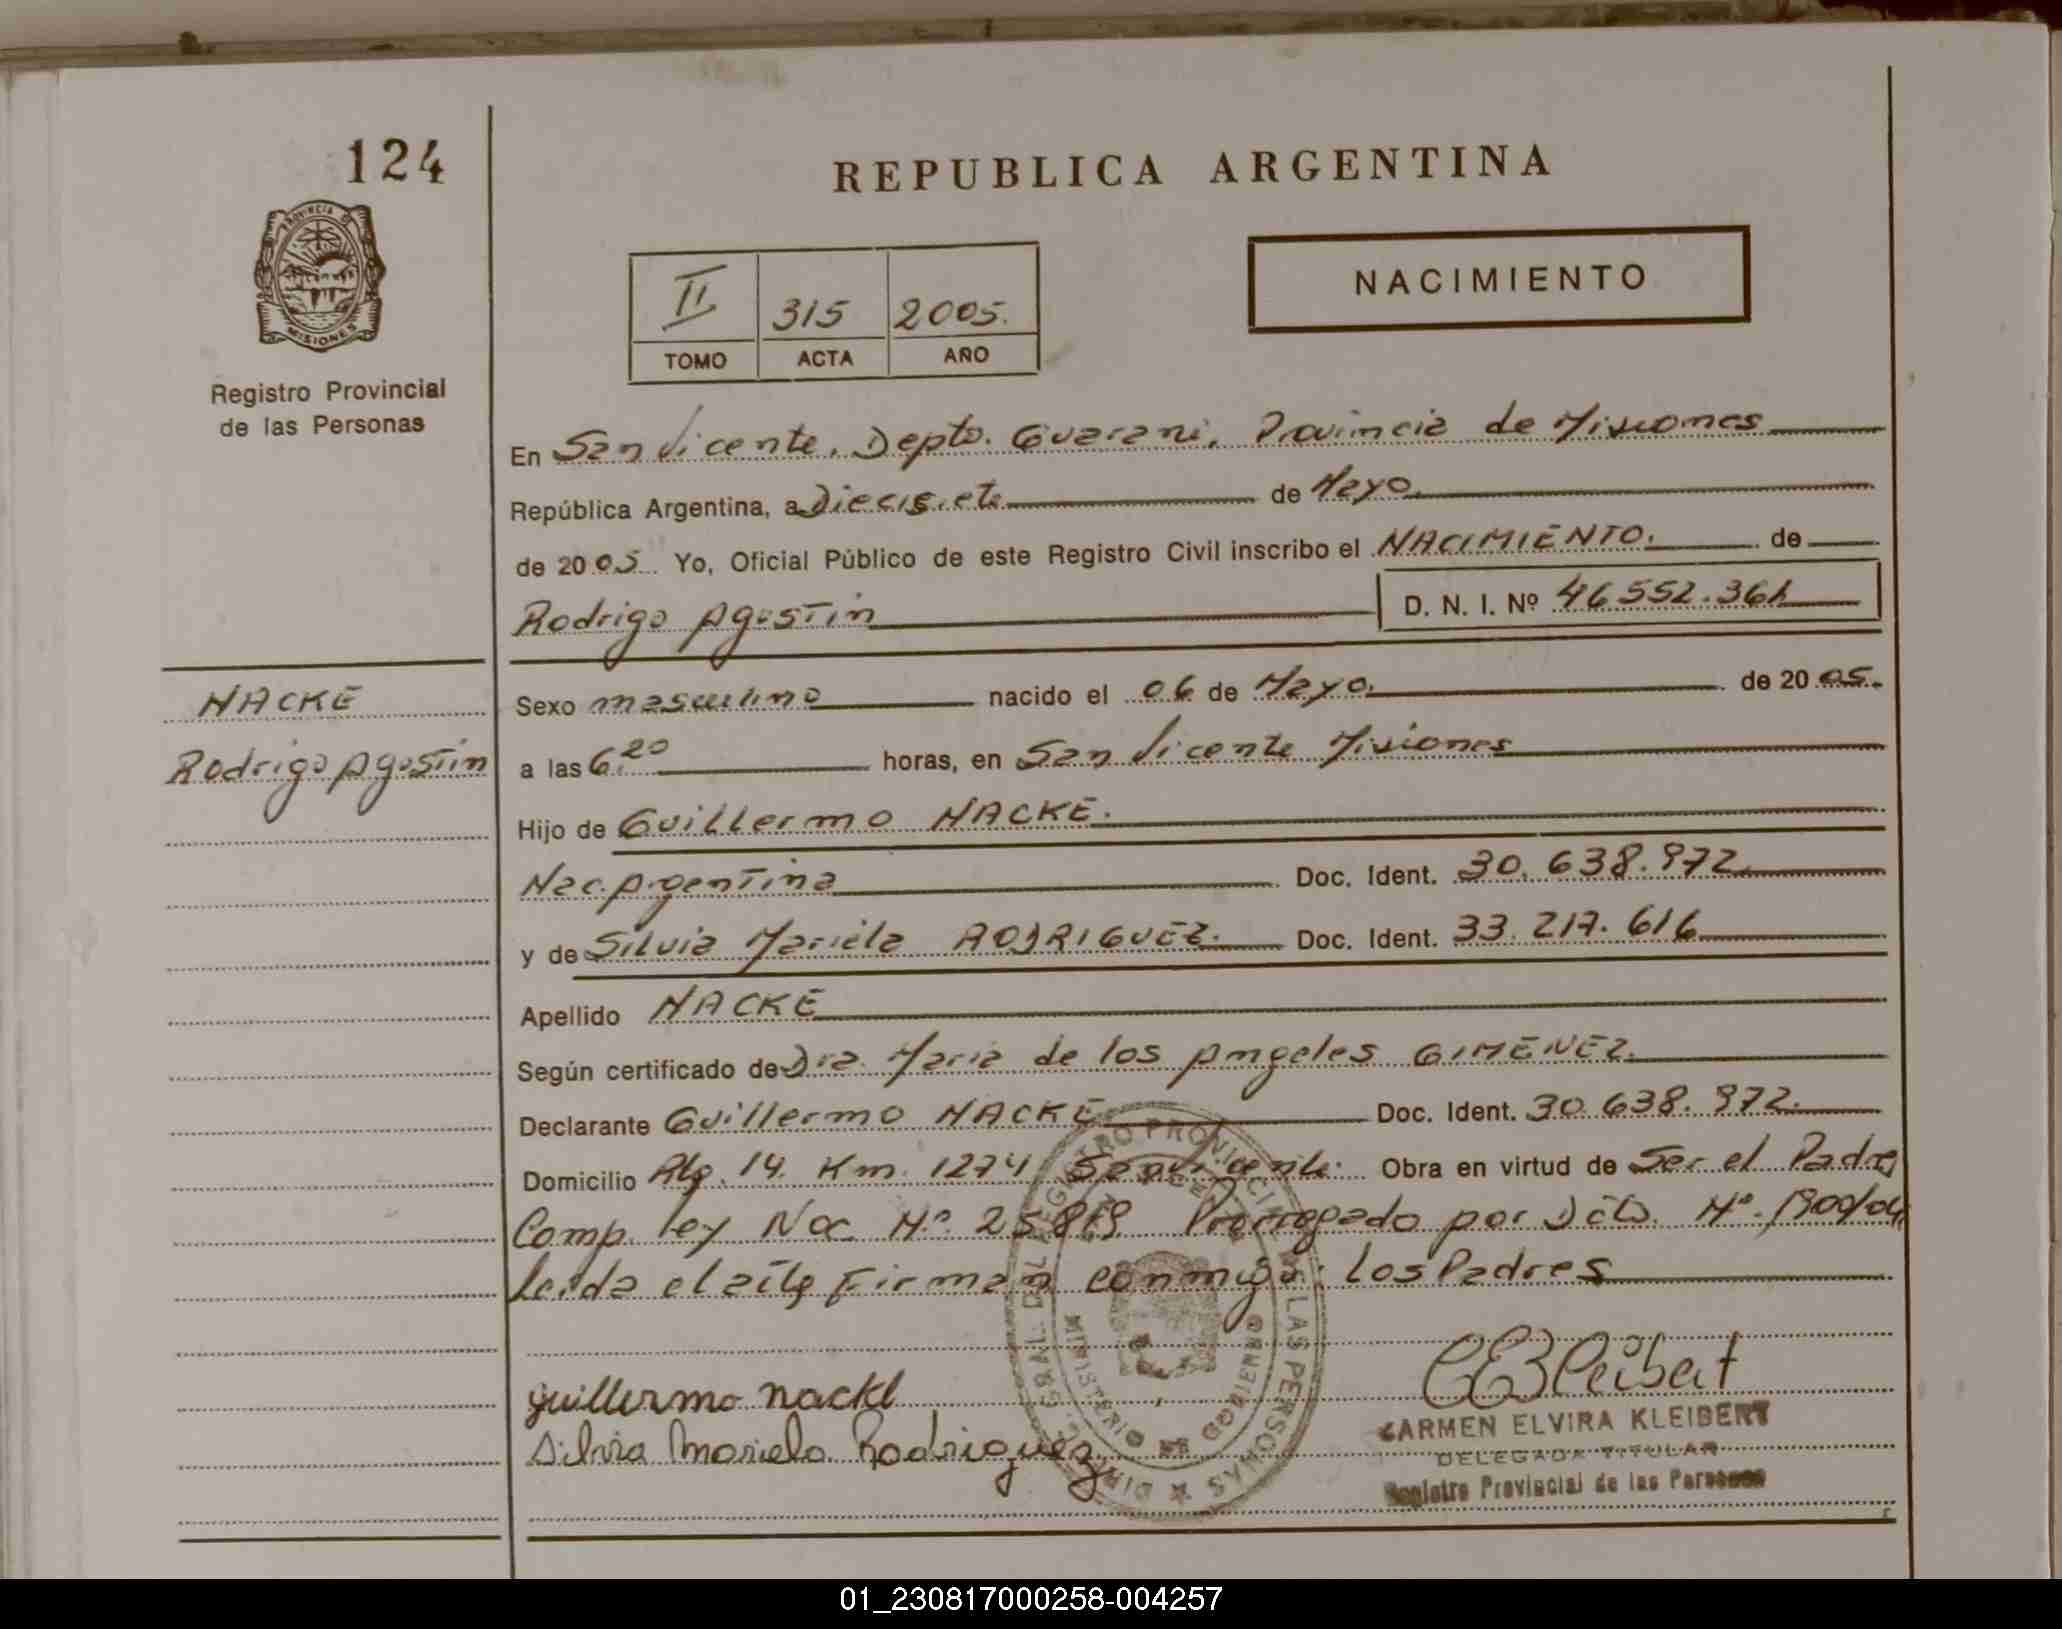 124
PROVINCIA DE
MISIONES
Registro Provincial
de las Personas
REPUBLICA ARGENTINA
II 315 2005.
TOMO ACTA AÑO
NACIMIENTO
En San Vicente, Depto. Guarani, Provincia de Misiones
República Argentina, a Diecisiete de Mayo
de 2005 Yo, Oficial Público de este Registro Civil inscribo el NACIMIENTO. de
Rodrigo Agostin D. N. I. Nº 46552.361
NACKE
Rodrigo Agostin
Sexo masculino nacido el 06 de Mayo. de 2005.
a las 6.20 horas, en San Vicente Misiones
Hijo de Guillermo NACKE.
Nac. Argentina Doc. Ident. 30.638.972
y de Silvia Mariela RODRIGUEZ. Doc. Ident. 33.217.616
Apellido NACKE
Según certificado de Dra. Maria de los Angeles GIMENEZ.
Declarante Guillermo NACKE Doc. Ident. 30.638.972.
Domicilio 14 Km. 1274 San Vicente. Obra en virtud de Ser el Padre
Comp. ley Nac. Nº 25819 Prorrogado por Dcto. Nº
Leida el acta Firman conmigo: Los Padres
guillermo nacke
Silvia Mariela Rodriguez
CEKleibert
CARMEN ELVIRA KLEIBERT
DELEGADA TITULAR
Registro Provincial de las Personas
DIRECC. GRAL. DEL REGISTRO PROVINCIAL DE LAS PERSONAS
MINISTERIO DE GOBIERNO
01_230817000258-004257